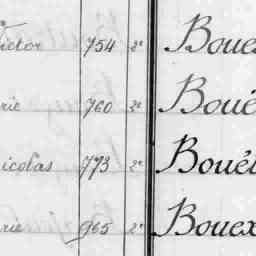 ictor 754 2e Bouex
rie 760 2e Boué
icolas 773 2e Bouét
rie 965 2e Bouex